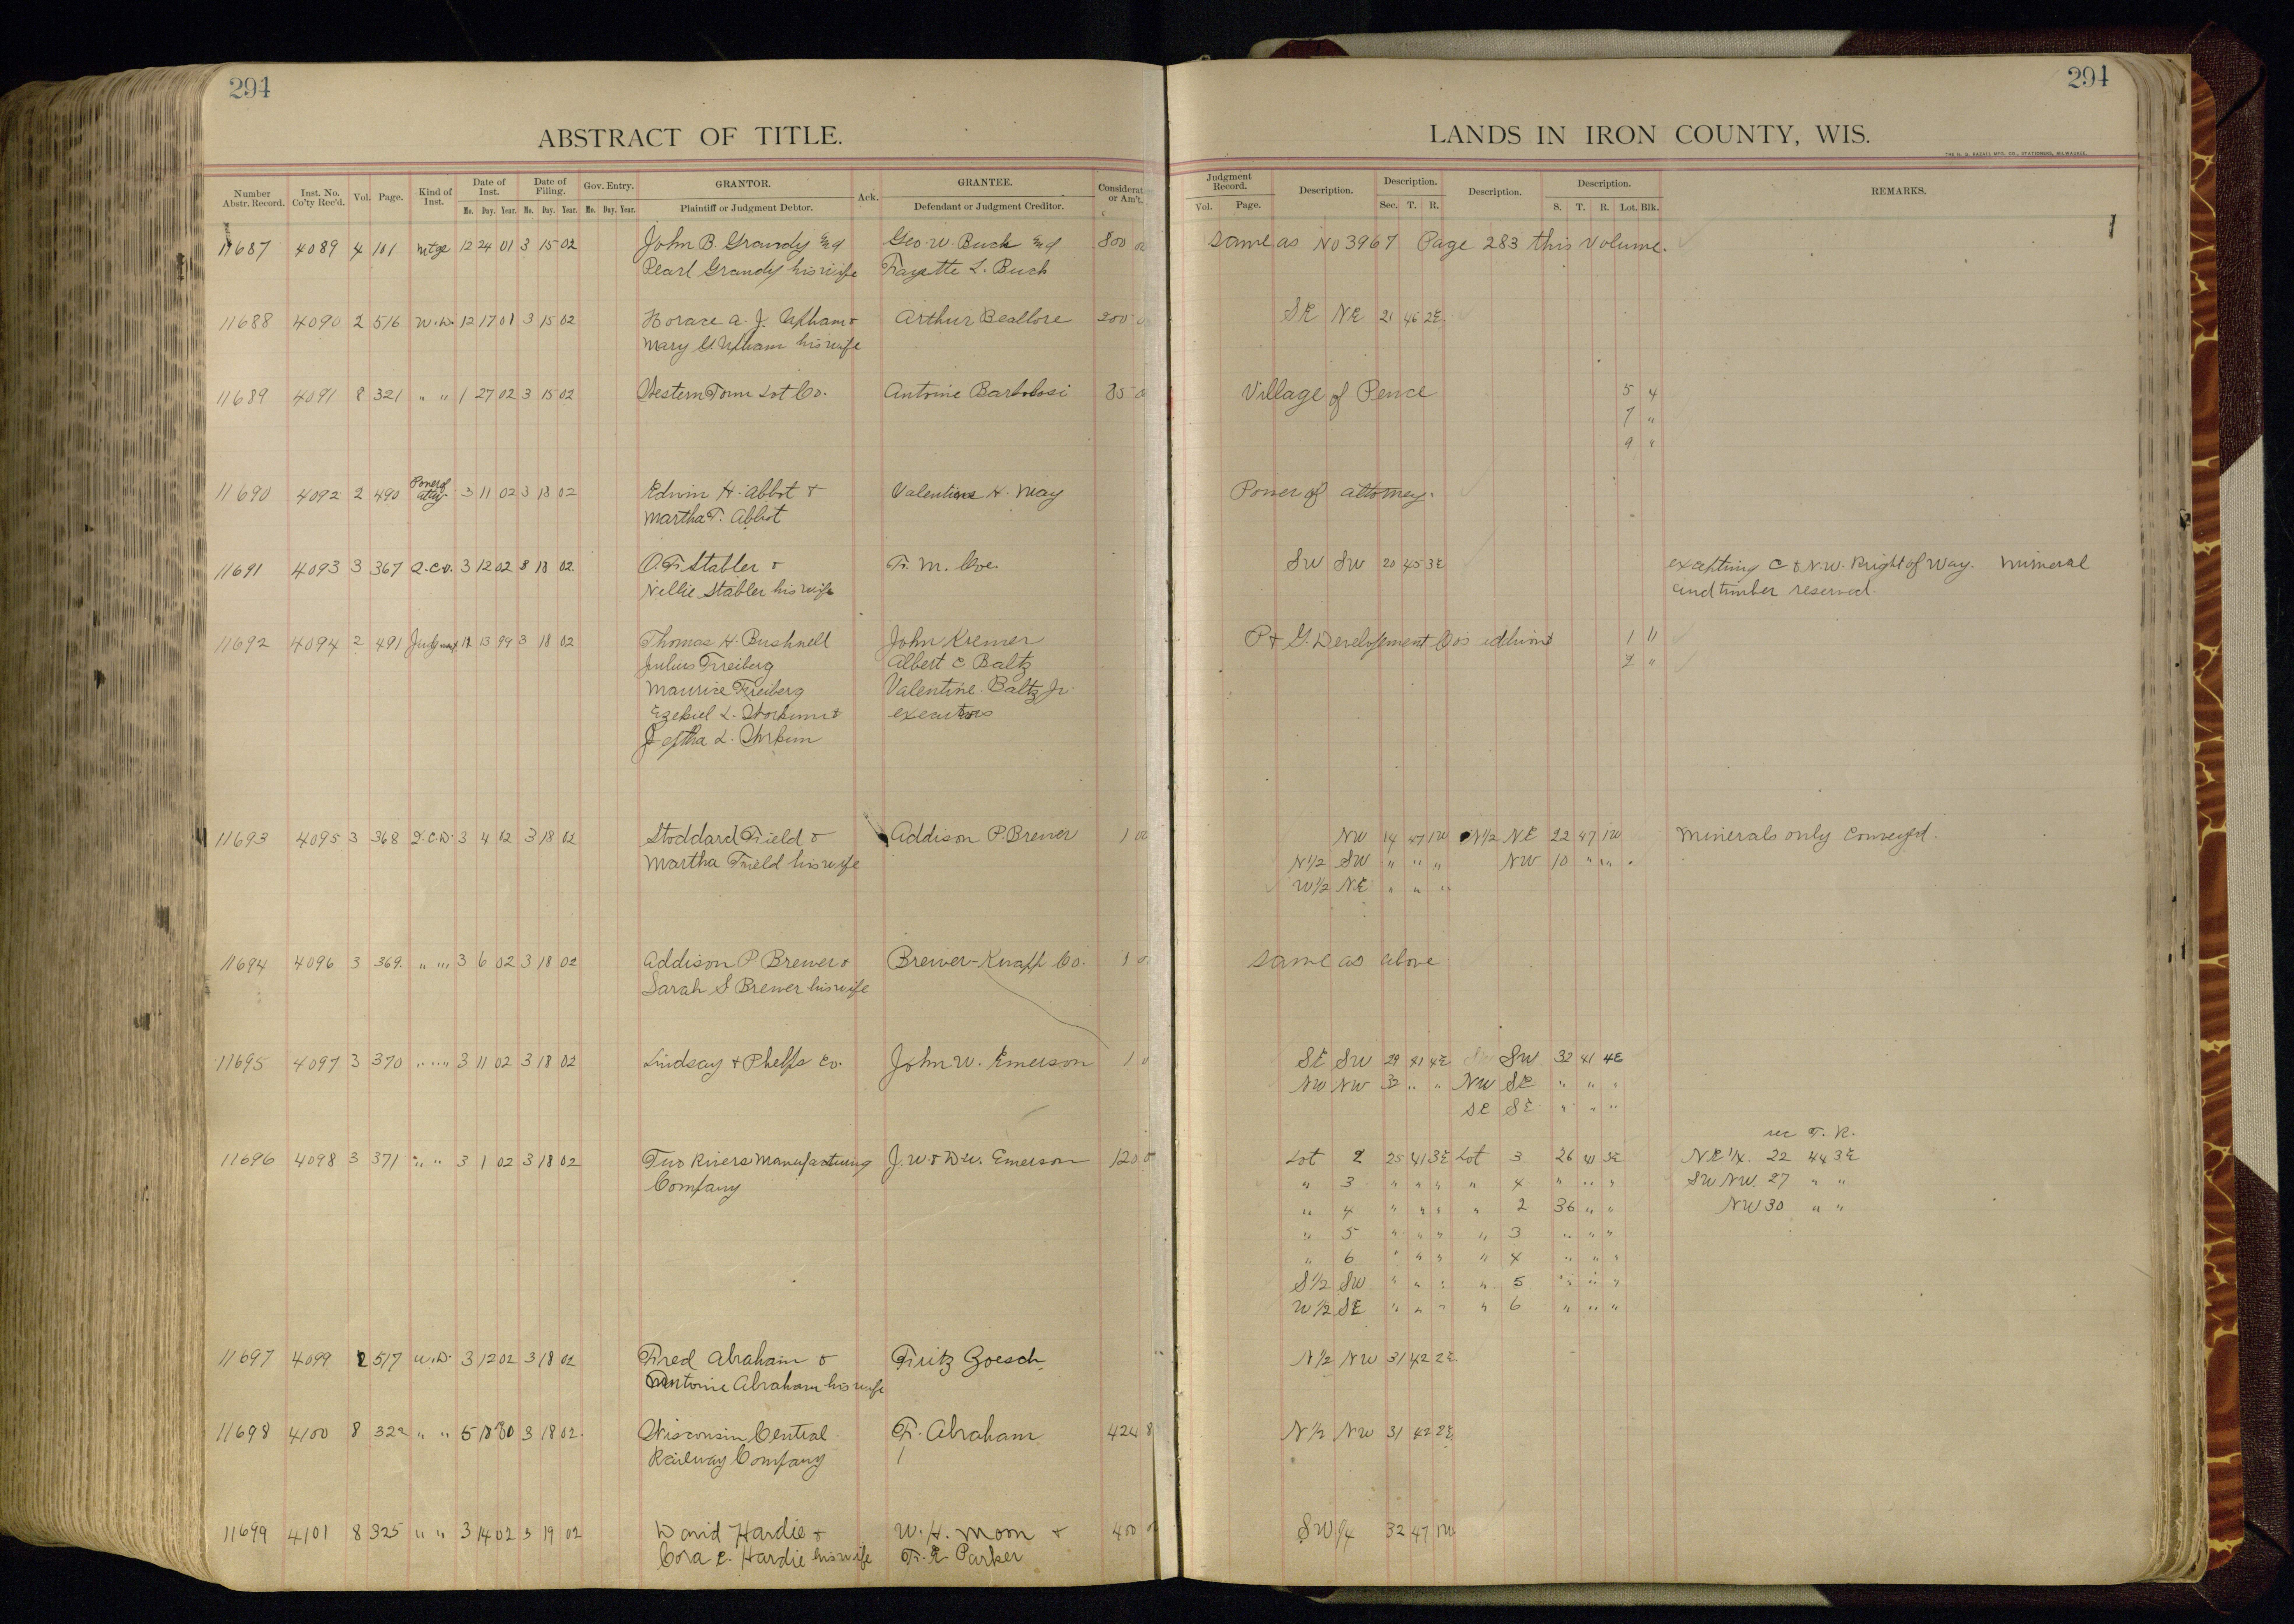 294
294
ABSTRACT OF TITLE.
LANDS IN IRON COUNTY, WIS.
Number Abstr. Record. Inst. No. Co'ty Rec'd. Vol. Page. Kind of Inst. Date of Inst. Mo. Day. Year. Date of Filing. Mo. Day. Year. Gov. Entry. Mo. Day. Year. GRANTOR. Plaintiff or Judgment Debtor. Ack. GRANTEE. Defendant or Judgment Creditor. Considerat or Am't.
Judgment Record. Vol. Page. Description. Description. Sec. T. R. Description. Description. S. T. R. Lot. Blk. REMARKS.
11687 4089 4 101 mtge 12 24 01 3 15 02 John B. Grandy Geo. W. Buck 800 00 same as No 3967 Page 283 this volume.
Pearl Grandy his wife Fayette L. Buck
11688 4090 2 516 W.D. 12 17 01 3 15 02 Horace A. J. Upham & Arthur 200 SE NE 21 46 2E
Mary G. Upham his wife
11689 4091 8 321 " " 1 27 02 3 15 02 Western Town Lot Co. Antoine 85 Village of Pence 5 4
7 "
9 "
11690 4092 2 490 Power of atty 3 11 02 3 18 02 Edwin H. Abbot & Valentine H. May Power of attorney.
Martha T. Abbot
11691 4093 3 367 Q.C.D. 3 12 02 3 18 02 O. F. Stabler & F. M. Coe SW SW 20 45 3E excepting C & N.W. Right of Way. Mineral
Nellie Stabler his wife and timber reserved.
11692 4094 2 491 Judgment 13 99 3 18 02 Thomas H. Bushnell John Kremer P & G. Development Cos 1 11
Julius Freiberg Albert C Baltz 2 "
Maurice Freiberg Valentine Baltz Jr.
Ezekiel L. Workum & executors
Jeptha L. Workum
11693 4095 3 368 Q.C.D. 3 4 02 3 18 02 Stoddard Field & Addison P. Brewer 1 00 NW 14 47 1W N1/2 NE 22 47 1W Minerals only conveyed.
Martha Field his wife N1/2 SW " " " NW 10 " " "
W1/2 NE " " "
11694 4096 3 369. " " " 3 6 02 3 18 02 Addison P Brewer & Brewer-Knapp Co. 1 same as above
Sarah S Brewer his wife
11695 4097 3 370 " " " 3 11 02 3 18 02 Lindsay & Phelps Co. John W. Emerson 1 SE SW 29 41 4E SW 32 41 4E
NW NW 32 " " NW SE " " "
SE SE " " "
sec T. R.
11696 4098 3 371 " " 3 1 02 3 18 02 Two Rivers Manufacturing J. W. & D W. Emerson 120 Lot 2 25 41 3E Lot 3 26 41 3E NE1/4 22 44 3E
Company " 3 " " " " 4 " " " SW NW 27 " "
" 4 " " " " 2 36 " " NW 30 " "
" 5 " " " " 3 " " "
" 6 " " " " 4 " " "
S1/2 SW " " " " 5 " " "
W1/2 SE " " " " 6 " " "
11697 4099 2 517 W.D. 3 12 02 3 18 02 Fred Abraham & Fritz Goesch N1/2 NW 31 42 2E
Antoine Abraham his wife
11698 4100 8 322 " " 5 18 3 18 02 Wisconsin Central F. Abraham 424 8 N1/2 NW 31 42 2E
Railway Company
11699 4101 8 325 " " 3 14 02 3 19 02 David Hardie & W. H. Moon & 400 SW1/4 32 47 1W
Cora E. Hardie his wife F. E. Parker